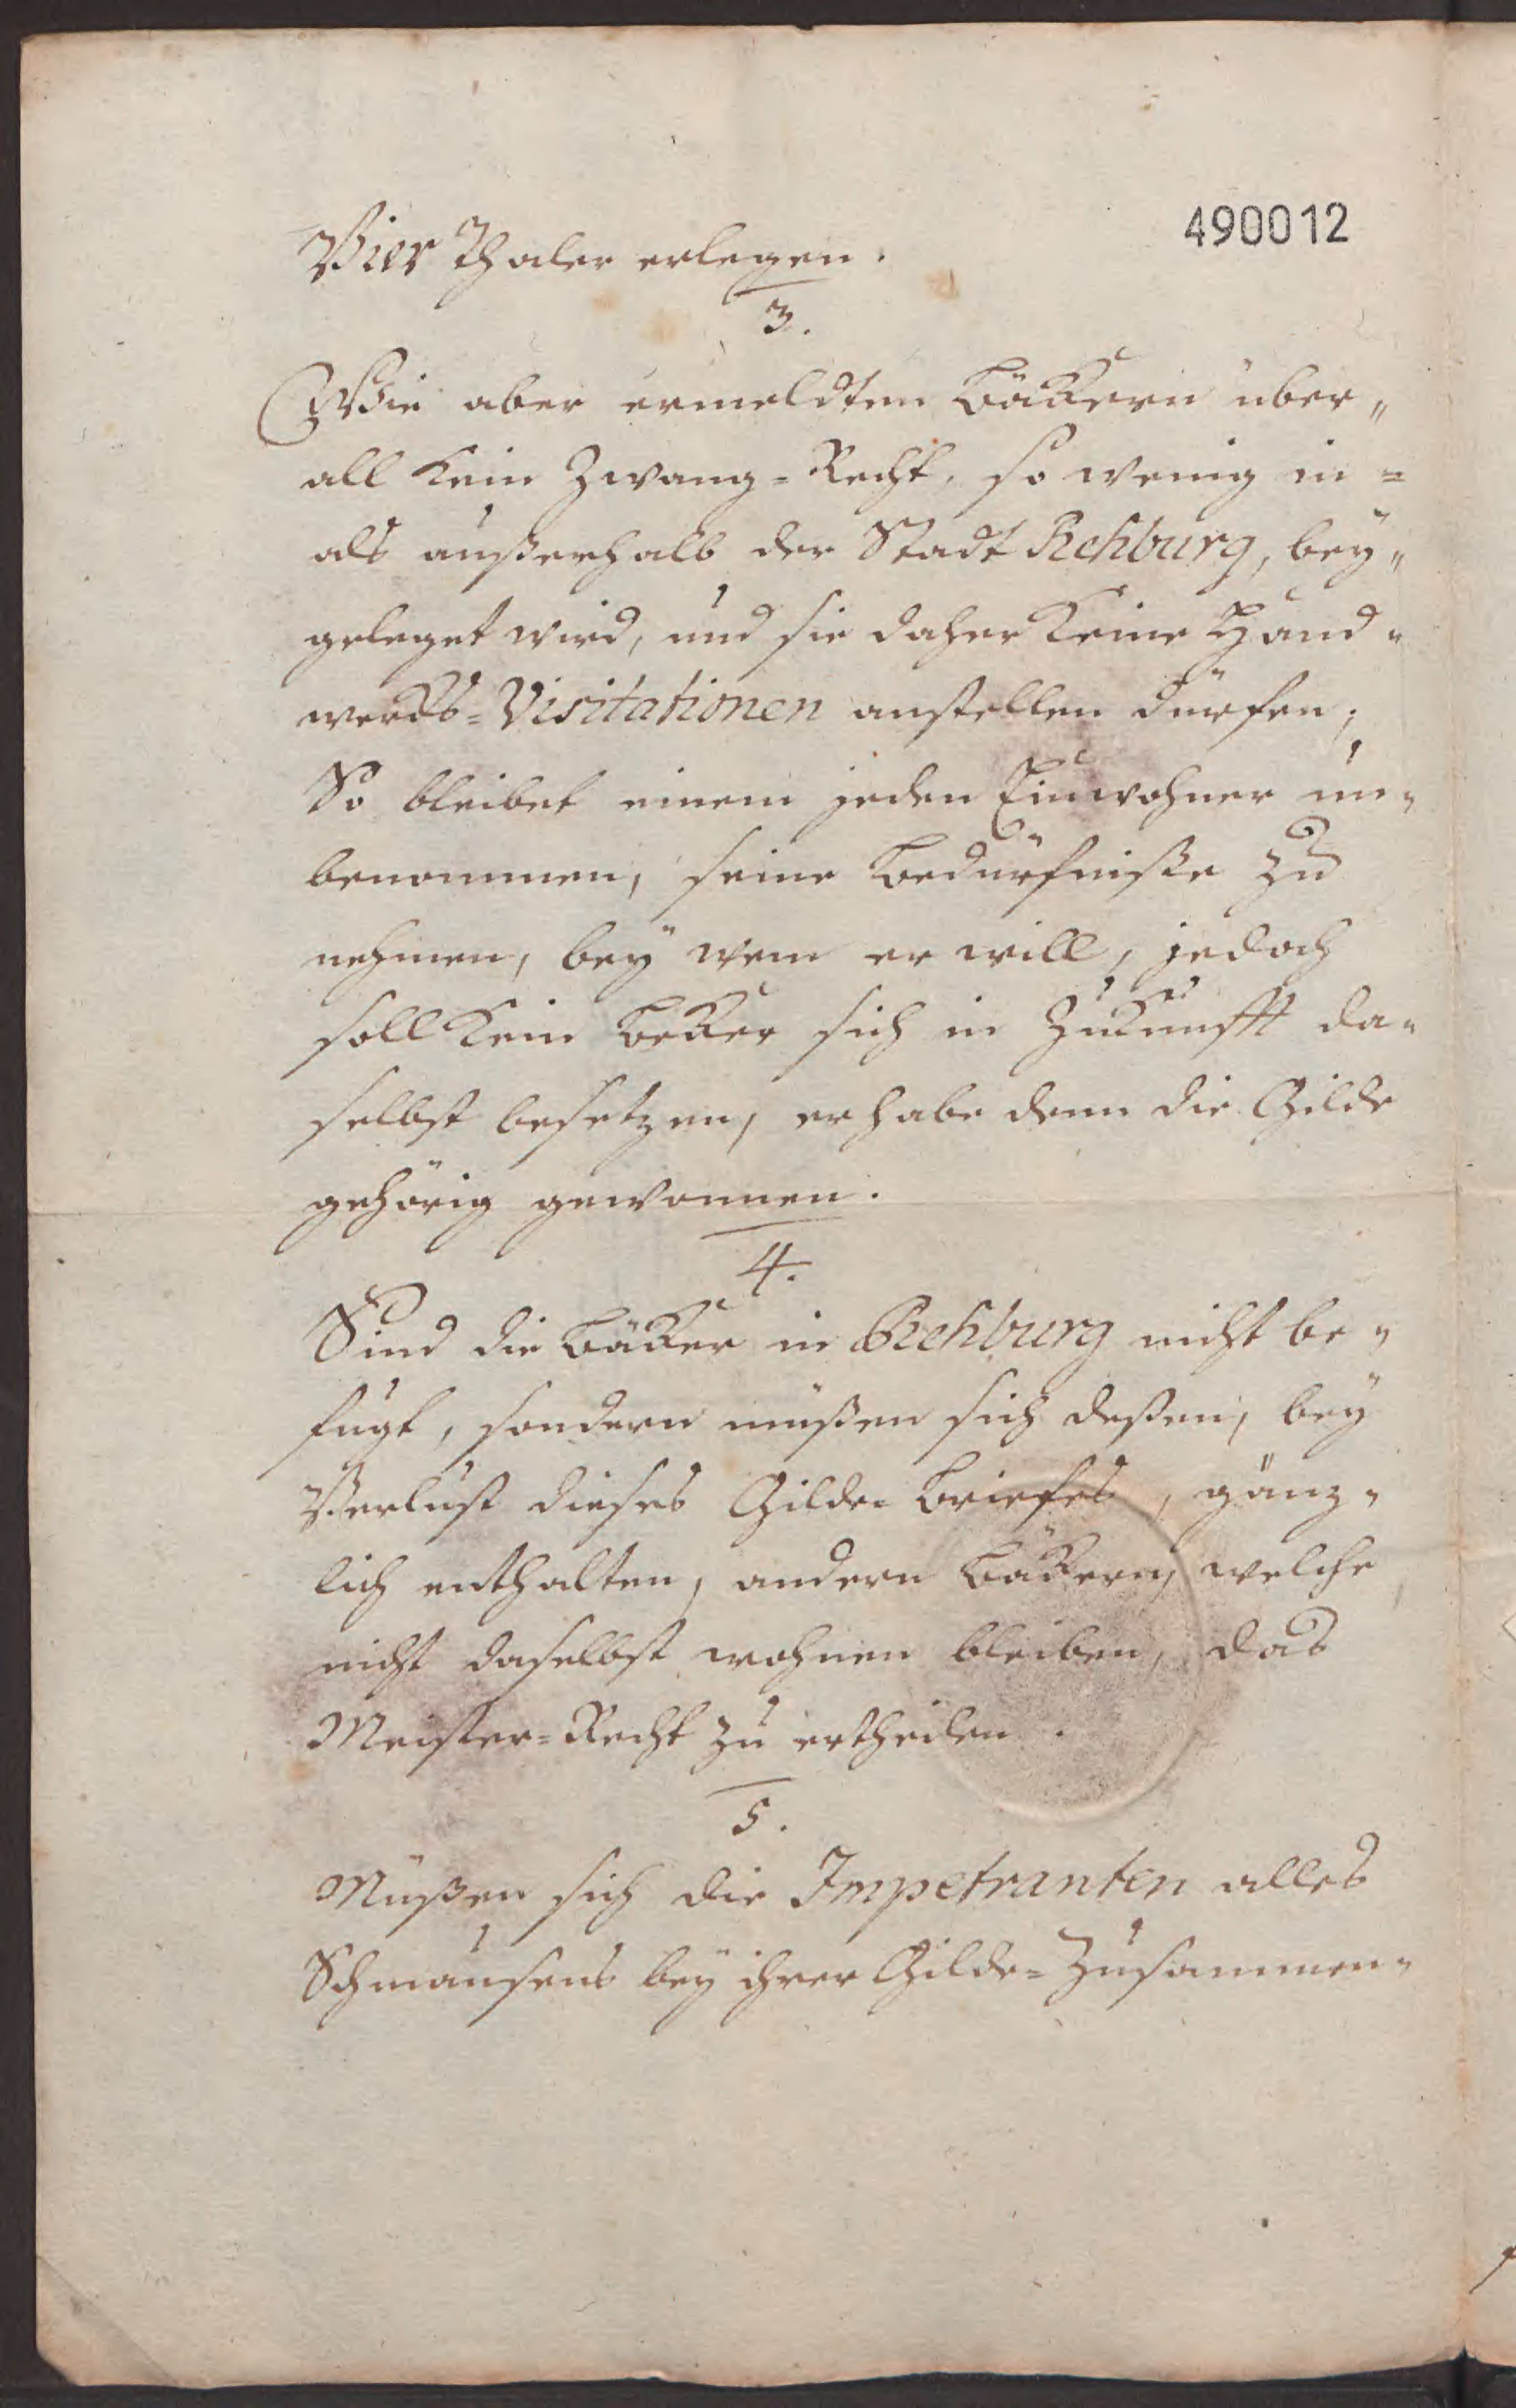 490012
Vier Thaler erlegen.
3.
Wie aber ermeldten Bäkkern über„
all kein Zwang=Recht, so wenig in=
als außerhalb der Stadt Rehburg, bey„
geleget wird, und sie daher keine Hand„
wercks=Visitationen anstellen dürfen;
So bleibet einem jeden Einwohner un„
benommen, seine Bedürfniße zu
nehmen, bey wem er will, jedoch
soll kein Bekker sich in Zukunfft da„
selbst besetzen, er habe denn die Gilde
gehörig gewonnen.
4.
Sind die Bäkker in Rehburg nicht be„
fugt, sondern müßen sich deßen, bey
Verlust dieses Gilde=Briefes, gänz„
lich enthalten, andern Bäkkern, welche
nicht daselbst wohnen bleiben, das
Meister=Recht zu ertheilen.
5.
Müßen sich die Impetranten alles
Schmausens bey ihrer Gilde=Zusammen„